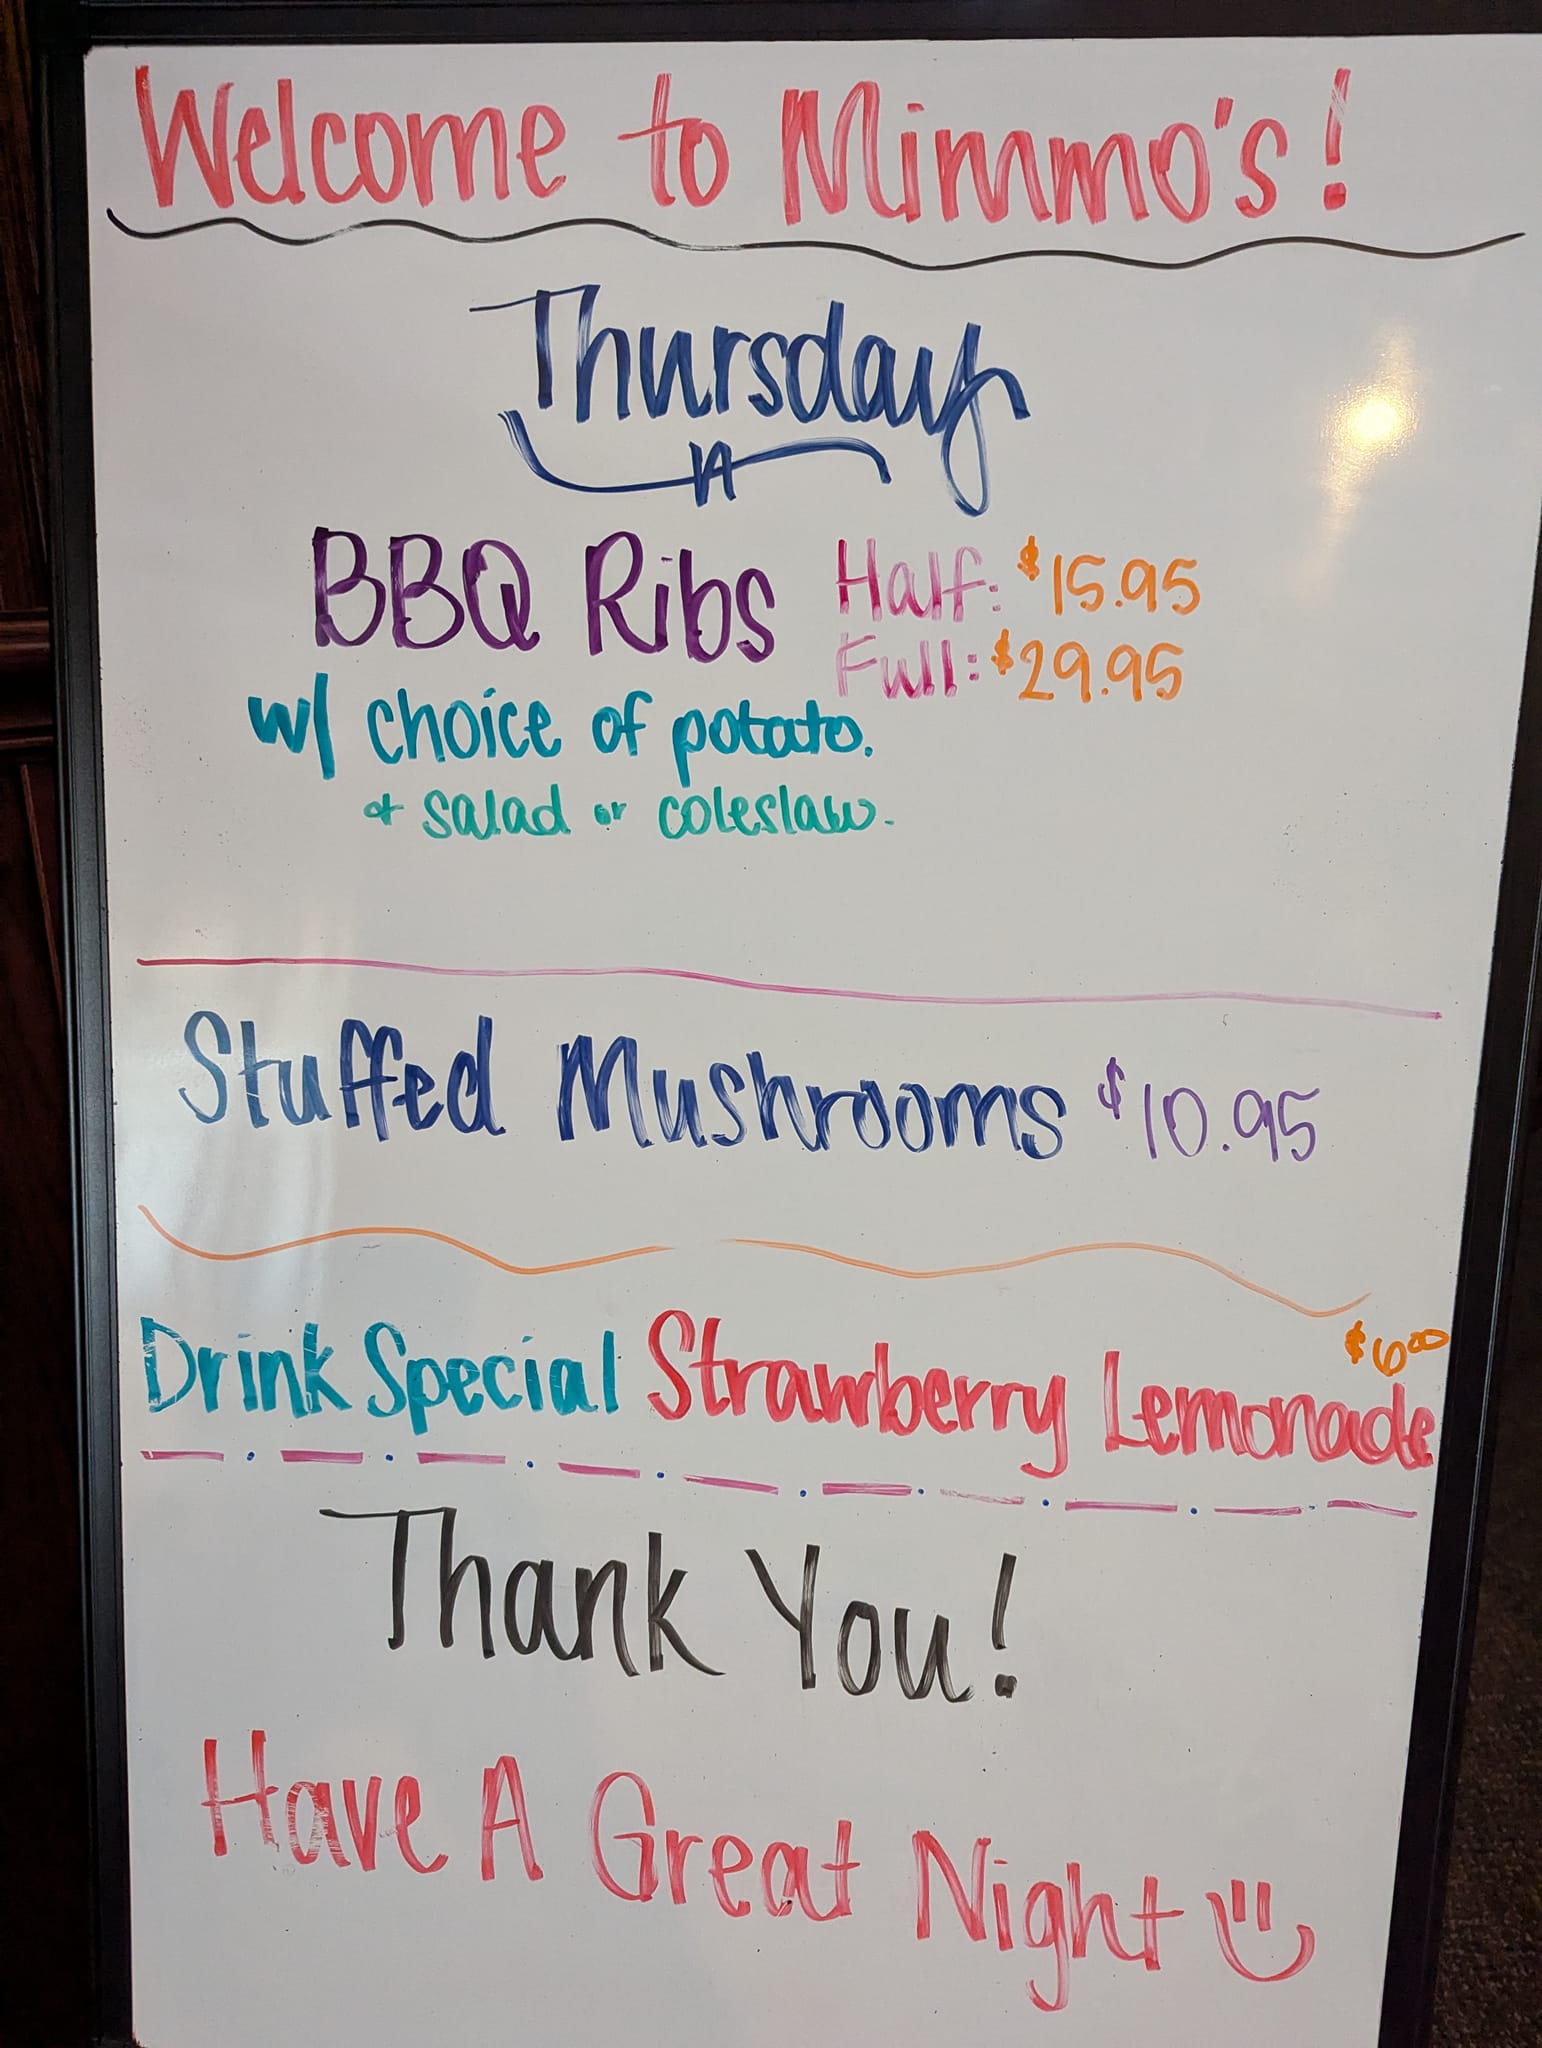 Welcome to Mimmo's!
Thursday
BBQ Ribs Half: $15.95
Full: $29.95
w/ choice of potato.
& salad or coleslaw.
Stuffed Mushrooms $10.95
Drink Special Strawberry Lemonade $6.00
Thank You!
Have A Great Night